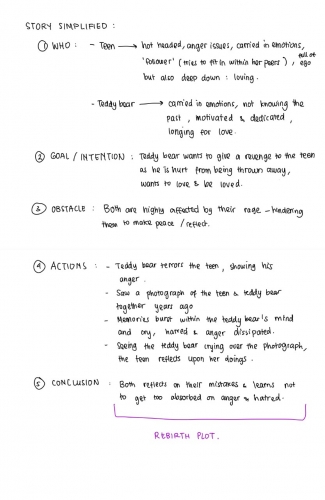 STORY SIMPLIFIED :
① WHO : - Teen → hot headed, anger issues, carried in emotions,
'follower' (tries to fit in within her peers) , full of ego
but also deep down : loving.
- Teddy bear → carried in emotions, not knowing the
past , motivated & dedicated ,
longing for love.
② GOAL / INTENTION : Teddy bear wants to give a revenge to the teen
as he is hurt from being thrown away,
wants to love & be loved.
③ OBSTACLE : Both are highly affected by their rage - hindering
them to make peace / reflect.
④ ACTIONS : - Teddy bear terrors the teen , showing his
anger .
- Saw a photograph of the teen & teddy bear
together years ago
- Memories burst within the teddy bear's mind
and cry, hatred & anger dissipated.
- Seeing the teddy bear crying over the photograph,
the teen reflects upon her doings .
⑤ CONCLUSION : Both reflects on their mistakes & learns not
to get too absorbed on anger & hatred.
REBIRTH PLOT .